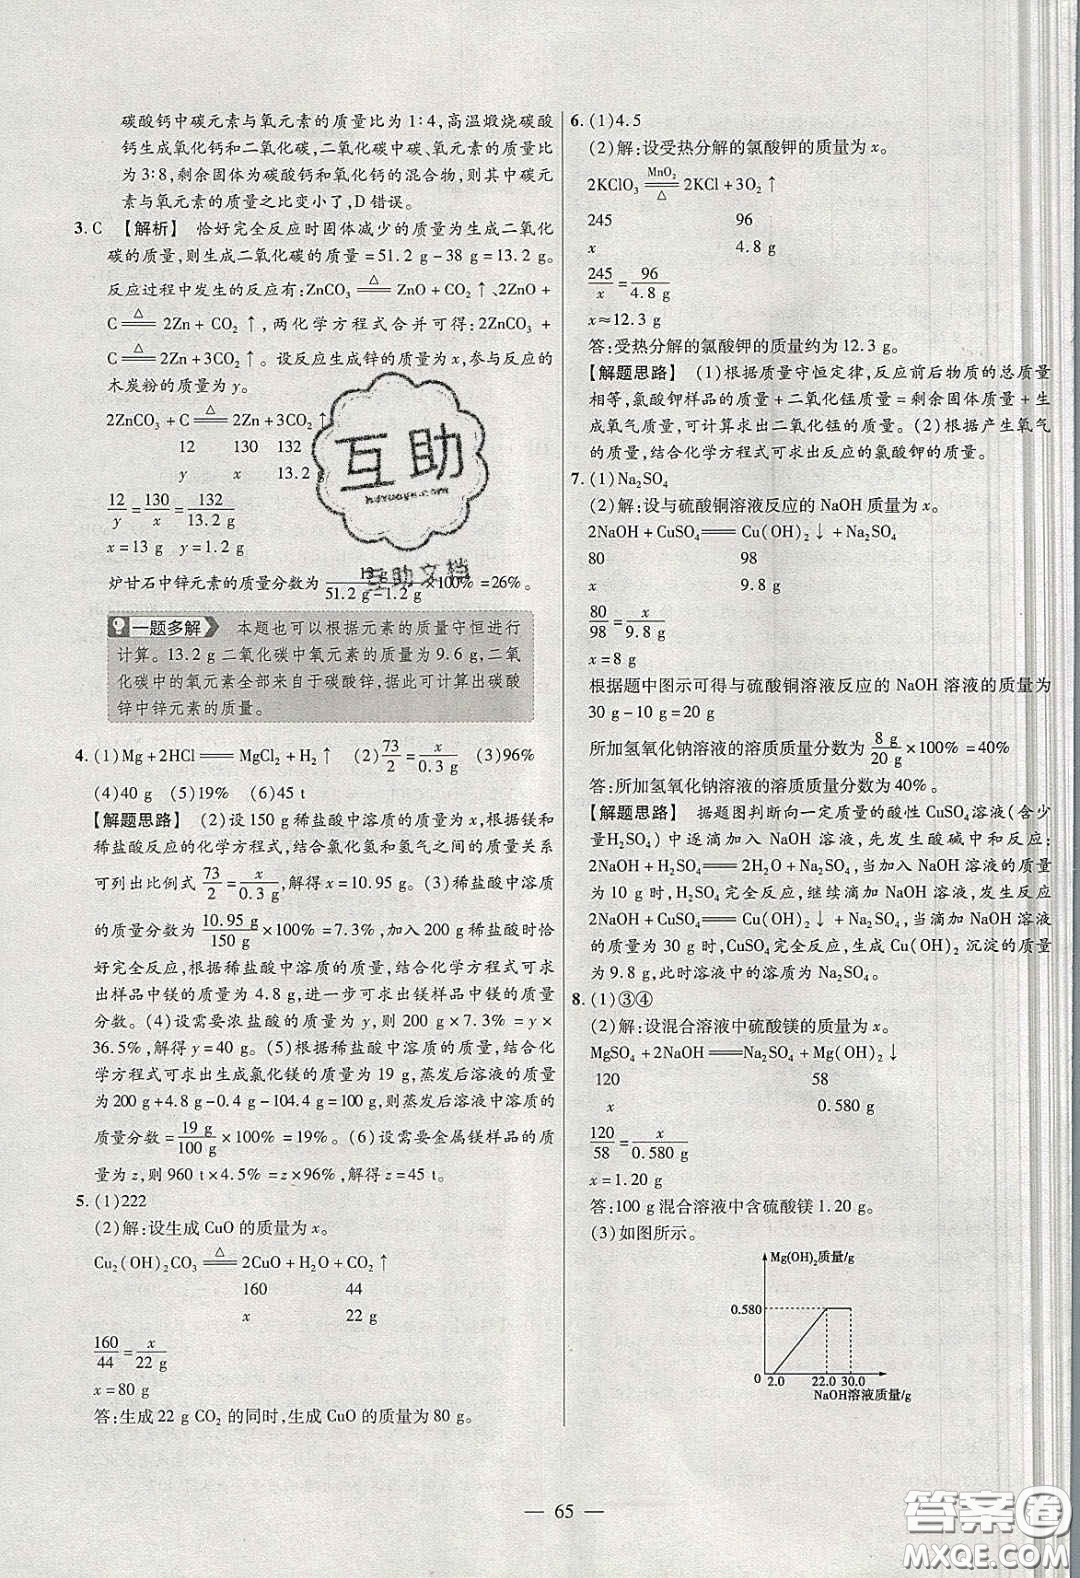 碳酸钙中碳元素与氧元素的质量比为 1∶4,高温煅烧碳酸
钙生成氧化钙和二氧化碳,二氧化碳中碳、氧元素的质量比
为 3∶8,剩余固体为碳酸钙和氧化钙的混合物,则其中碳元
素与氧元素的质量之比变小了,D 错误。
3. C 【解析】 恰好完全反应时固体减少的质量为生成二氧化
碳的质量,则生成二氧化碳的质量 = 51.2 g - 38 g = 13.2 g。
反应过程中发生的反应有:ZnCO₃ ══△ ZnO + CO₂↑、2ZnO +
C ══△ 2Zn + CO₂↑,两化学方程式合并可得:2ZnCO₃ +
C ══△ 2Zn + 3CO₂↑。设反应生成锌的质量为 x,参与反应的
木炭粉的质量为 y。
2ZnCO₃ + C ══△ 2Zn + 3CO₂↑
12 130 132
y x 13.2 g
12/y = 130/x = 132/13.2 g
x = 13 g y = 1.2 g
炉甘石中锌元素的质量分数为 13 g/(51.2 g - 1.2 g) × 100% = 26%。
一题多解 本题也可以根据元素的质量守恒进行
计算。13.2 g 二氧化碳中氧元素的质量为 9.6 g,二氧
化碳中的氧元素全部来自于碳酸锌,据此可计算出碳酸
锌中锌元素的质量。
4. (1)Mg + 2HCl ══ MgCl₂ + H₂↑ (2) 73/2 = x/0.3 g (3)96%
(4)40 g (5)19% (6)45 t
【解题思路】 (2)设 150 g 稀盐酸中溶质的质量为 x,根据镁和
稀盐酸反应的化学方程式,结合氯化氢和氢气之间的质量关系
可列出比例式 73/2 = x/0.3 g,解得 x = 10.95 g。(3)稀盐酸中溶质
的质量分数为 10.95 g/150 g × 100% = 7.3%,加入 200 g 稀盐酸时恰
好完全反应,根据稀盐酸中溶质的质量,结合化学方程式可求
出样品中镁的质量为 4.8 g,进一步可求出镁样品中镁的质量
分数。(4)设需要浓盐酸的质量为 y,则 200 g × 7.3% = y ×
36.5%,解得 y = 40 g。(5)根据稀盐酸中溶质的质量,结合化
学方程式可求出生成氯化镁的质量为 19 g,蒸发后溶液的质
量为 200 g + 4.8 g - 0.4 g - 104.4 g = 100 g,则蒸发后溶液中溶质的
质量分数 = 19 g/100 g × 100% = 19%。(6)设需要金属镁样品的质
量为 z,则 960 t × 4.5% = z × 96%,解得 z = 45 t。
5. (1)222
(2)解:设生成 CuO 的质量为 x。
Cu₂(OH)₂CO₃ ══△ 2CuO + H₂O + CO₂↑
160 44
x 22 g
160/44 = x/22 g
x = 80 g
答:生成 22 g CO₂ 的同时,生成 CuO 的质量为 80 g。
6. (1)4.5
(2)解:设受热分解的氯酸钾的质量为 x。
2KClO₃ ══MnO₂/△ 2KCl + 3O₂↑
245 96
x 4.8 g
245/x = 96/4.8 g
x ≈ 12.3 g
答:受热分解的氯酸钾的质量约为 12.3 g。
【解题思路】 (1)根据质量守恒定律,反应前后物质的总质量
相等,氯酸钾样品的质量 + 二氧化锰质量 = 剩余固体质量 + 生
成氧气质量,可计算求出二氧化锰的质量。(2)根据产生氧气
的质量,结合化学方程式可求出反应的氯酸钾的质量。
7. (1)Na₂SO₄
(2)解:设与硫酸铜溶液反应的 NaOH 质量为 x。
2NaOH + CuSO₄ ══ Cu(OH)₂↓ + Na₂SO₄
80 98
x 9.8 g
80/98 = x/9.8 g
x = 8 g
根据题中图示可得与硫酸铜溶液反应的 NaOH 溶液的质量为
30 g - 10 g = 20 g
所加氢氧化钠溶液的溶质质量分数为 8 g/20 g × 100% = 40%
答:所加氢氧化钠溶液的溶质质量分数为 40%。
【解题思路】 据题图判断向一定质量的酸性 CuSO₄ 溶液(含少
量 H₂SO₄)中逐滴加入 NaOH 溶液,先发生酸碱中和反应:
2NaOH + H₂SO₄ ══ 2H₂O + Na₂SO₄,当加入 NaOH 溶液的质量
为 10 g 时,H₂SO₄ 完全反应,继续滴加 NaOH 溶液,发生反应
2NaOH + CuSO₄ ══ Cu(OH)₂↓ + Na₂SO₄,当滴加 NaOH 溶液
的质量为 30 g 时,CuSO₄ 完全反应,生成 Cu(OH)₂ 沉淀的质量
为 9.8 g,此时溶液中的溶质为 Na₂SO₄。
8. (1)③④
(2)解:设混合溶液中硫酸镁的质量为 x。
MgSO₄ + 2NaOH ══ Na₂SO₄ + Mg(OH)₂↓
120 58
x 0.580 g
120/58 = x/0.580 g
x = 1.20 g
答:100 g 混合溶液中含硫酸镁 1.20 g。
(3)如图所示。
Mg(OH)₂质量/g
0.580
0 2.0 22.0 30.0
NaOH溶液质量/g
互助
互助文档
— 65 —
答案圈
MXQE.COM